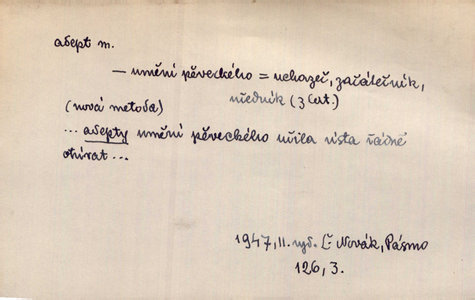 adept m.
— umění pěveckého = uchazeč, začátečník,
učedník (3 čet.)
(nová metoda)
... adepty umění pěveckého učila ústa řádně
otvírat ...
1947, II. vyd. Novák, Pásmo
126, 3.